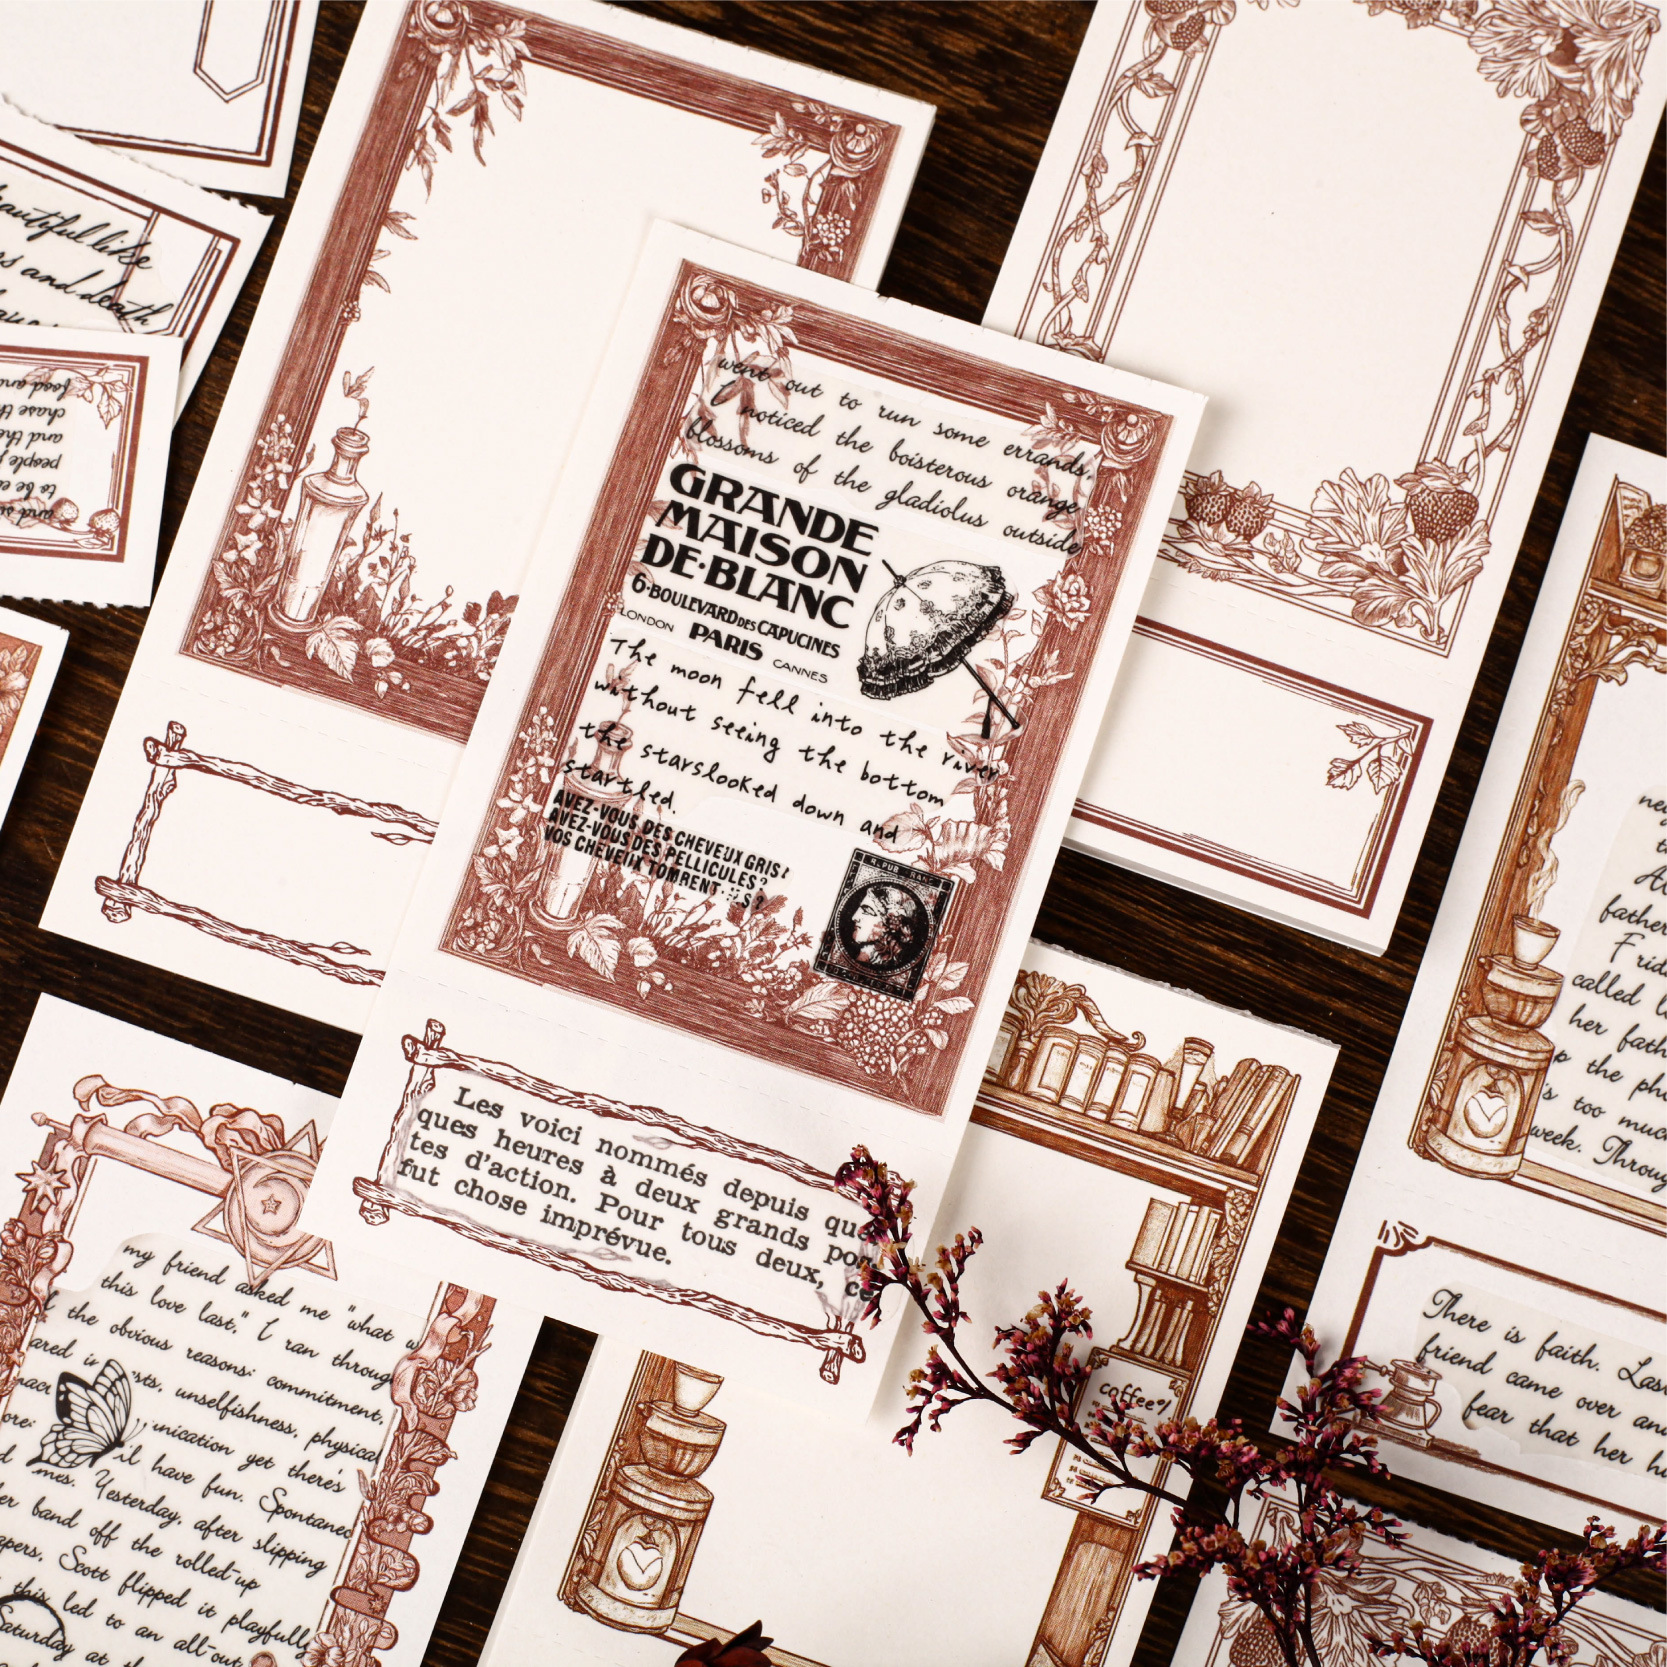 beautiful like
and death
food and
chase th
and the
people
to be e
and s
went out to run some errands,
I noticed the boisterous orange
blossoms of the gladiolus outside
GRANDE
MAISON
DE·BLANC
6·BOULEVARD DES CAPUCINES
LONDON PARIS CANNES
The moon fell into the river
without seeing the bottom
the starslooked down and
startled.
AVEZ-VOUS DES CHEVEUX GRIS?
AVEZ-VOUS DES PELLICULES?
VOS CHEVEUX TOMBENT-ILS?
Les voici nommés depuis quel
ques heures à deux grands pos
tes d'action. Pour tous deux, ce
fut chose imprévue.
my friend asked me "what
this love last," I ran throug
the obvious reasons: commitment,
unselfishness, physical
unication yet there's
have fun. Spontaneo
Yesterday, after slipping
band off the rolled-up
Scott flipped it playfully
this led to an all-out
Saturday at
coffee
father
Frid
called
her fath
p the ph
's too much
week. Throug
There is faith. Las
friend came over and
fear that her h